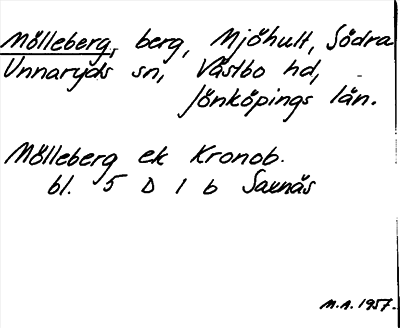 Mölleberg, berg, Mjöhult, Södra
Unnaryds sn, Västbo hd,
Jönköpings län.
Mölleberg ek Kronob.
bl. 5 D 1 b Saxnäs
M.A. 1957.